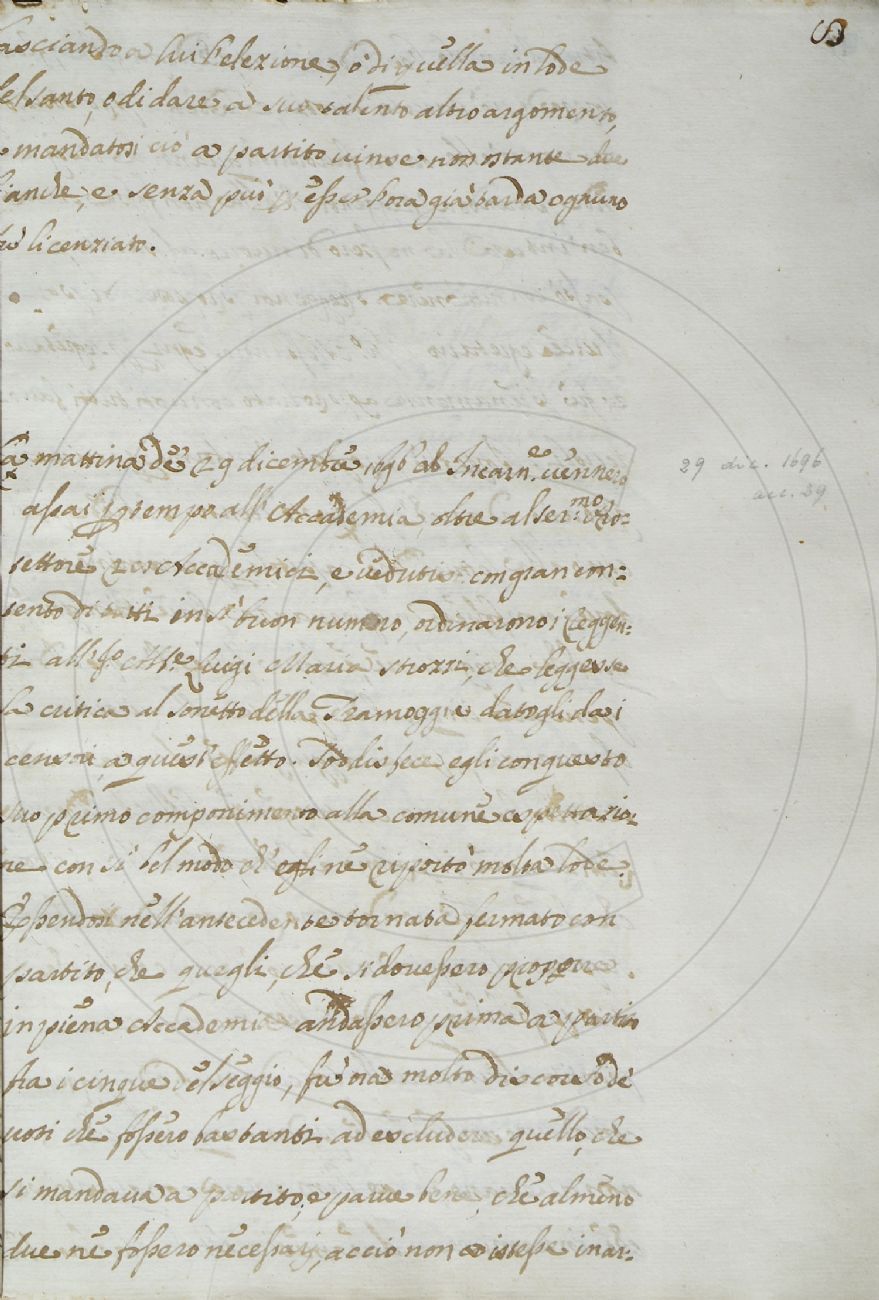 lasciando a lui l'elezione, o di quella in lode
del santo, o di dare a suo talento altro argomento,
e mandatosi ciò a partito vinse non ostante due
biancle, e senza più p esser hora già tarda ognuno
fù licenziato.
8
La mattina de' 29 dicembre 1696 ab Incarn.ne vennero
assai p tempo all'Accademia, oltre al ser.mo Pro-
tettore 20 Accademici, e vedutisi con gran con-
tento di tutti in sì buon numero, ordinarono i Reggen-
ti all' Luigi Maria Strozzi, che leggesse
la critica al sonetto della Tramoggia datogli da i
censori a quest'effetto. Soddisfece egli con questo
suo primo componimento alla comune espettazio-
ne con sì bel modo ch'egli ne riportò molta lode.
Essendosi nell'antecedente tornata fermato con
partito, che quegli, che si dovessero proporre
in piena Accademia andassero prima a partito
fra i cinque del seggio, fù ora molto discorso de'
voti che fossero bastanti ad escludere quello, che
si mandava a partito, e parve bene, che almeno
due ne fossero necessarij, acciò non ostesse in ar-
29 dic. 1696
acc. 29